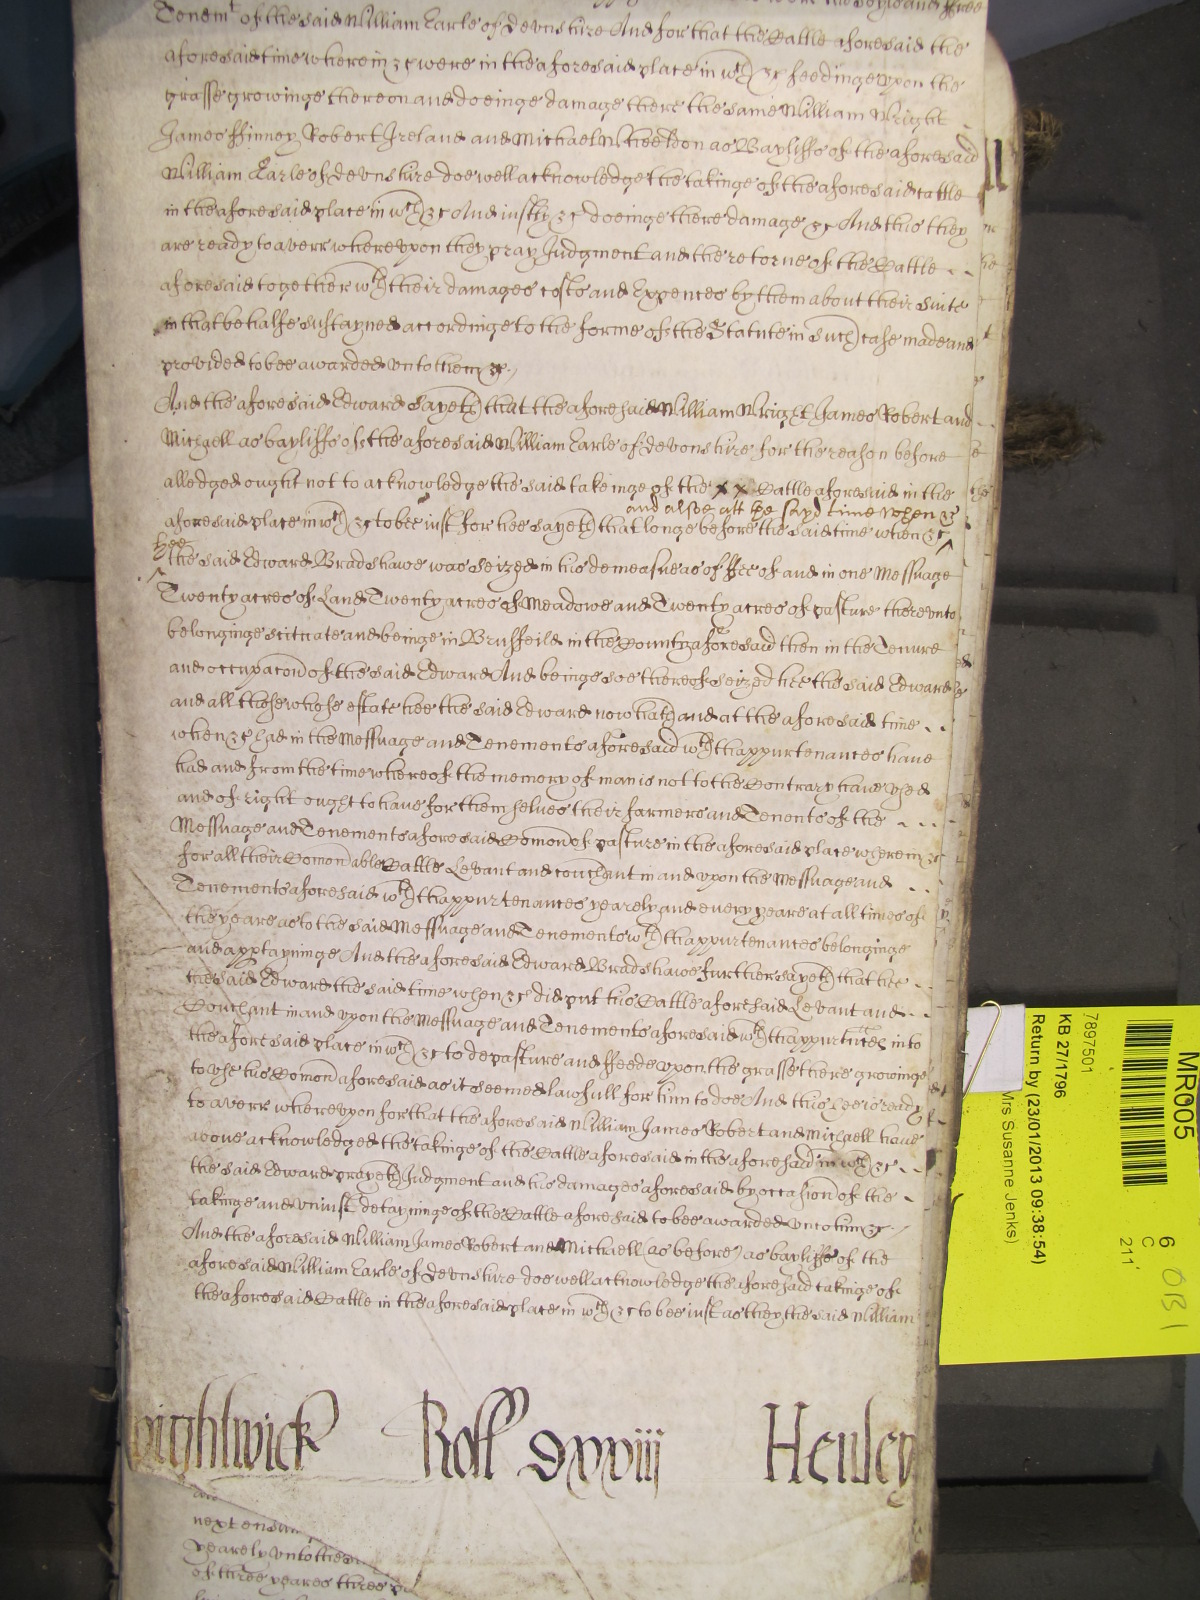 Tenemt of the said William Earle of Devonshire And for that the Cattle aforesaid the
aforesaid time wherein &c were in the aforesaid place in wch &c feedinge vpon the
grasse growinge thereon and doeinge damage there the same William Wright
James ffinney Robert Ireland and Michael Wheeldon as Bayliffs of the aforesaid
William Earle of Devonshire doe well acknowledge the takinge of the aforesaid cattle
in the aforesaid place in wch &c And iustly &c doeinge there damage &c And this they
are ready to averr wherevpon they pray Judgment and the retorne of the Cattle
aforesaid together wth their damages costs and Expences by them about their suite
in that behalfe sustayned accordinge to the forme of the Statute in such case made and
provided to bee awarded vnto them &c
And the aforesaid Edward sayeth that the aforesaid William Wright James Robert and
Michaell as bayliffs of the aforesaid William Earle of Devonshire for the reason before
alledged ought not to acknowledge the said takeinge of the x x Cattle aforesaid in the
and alsoe att the sayd time when &c
aforesaid place in wch &c to bee iust for hee sayeth that longe before the said time when &c
hee
the said Edward Bradshawe was seized in his demeasne as of ffee of and in one Messuage
Twenty acres of Land Twenty acres of Meadowe and Twenty acres of pasture therevnto
belonginge scituate and beinge in Brusfeild in the County aforesaid then in the Tenure
and occupacon of the said Edward And beinge soe thereof seized hee the said Edward
and all those whose estate hee the said Edward now hath and at the aforesaid time
when &c had in the Messuage and Tenements aforesaid wth thappurtenances have
had and from the time whereof the memory of man is not to the Contrary have vsed
and of right ought to have for themselves their farmers and Tenents of the
Messuage and Tenements aforesaid Comon of pasture in the aforesaid place wherein &c
for all their Comonable Cattle Levant and couchant in and vpon the Messuage and
Tenements aforesaid wth thappurtenances yearely and every yeare at all times of
the yeare as to the said Messuage and Tenements wth thappurtenances belonginge
and apptayninge And the aforesaid Edward Bradshawe further sayeth that hee
the said Edward the said time when &c did put his Cattle aforesaid Levant and
Couchant in and vpon the Messuage and Tenements aforesaid wth thappurtnces into
the aforesaid place in wch &c to depasture and ffeede vpon the grasse there growinge
to vse his Comon aforesaid as it seemed lawfull for him to doe And this hee is ready
to averr wherevpon for that the aforesaid William James Robert and Michaell have
above acknowledged the takinge of the Cattle aforesaid in the aforesaid in wch &c
the said Edward prayeth Judgment and his damages aforesaid by occasion of the
takinge and vniust detayninge of the Cattle aforesaid to bee awarded vnto him &c
And the aforesaid William James Robert and Michaell (as before) as bayliffs of the
aforesaid William Earle of Devonshire doe well acknowledge the aforesaid takinge of
the aforesaid Cattle in the aforesaid place in wch &c to bee iust as they the said William
Roll Dxxviij Henley
next
yearely vnto the
of three yeares three
MR005
7897501
KB 27/1796
Return by (23/01/2013 09:38:54)
Mrs Susanne Jenks)
6
C
211